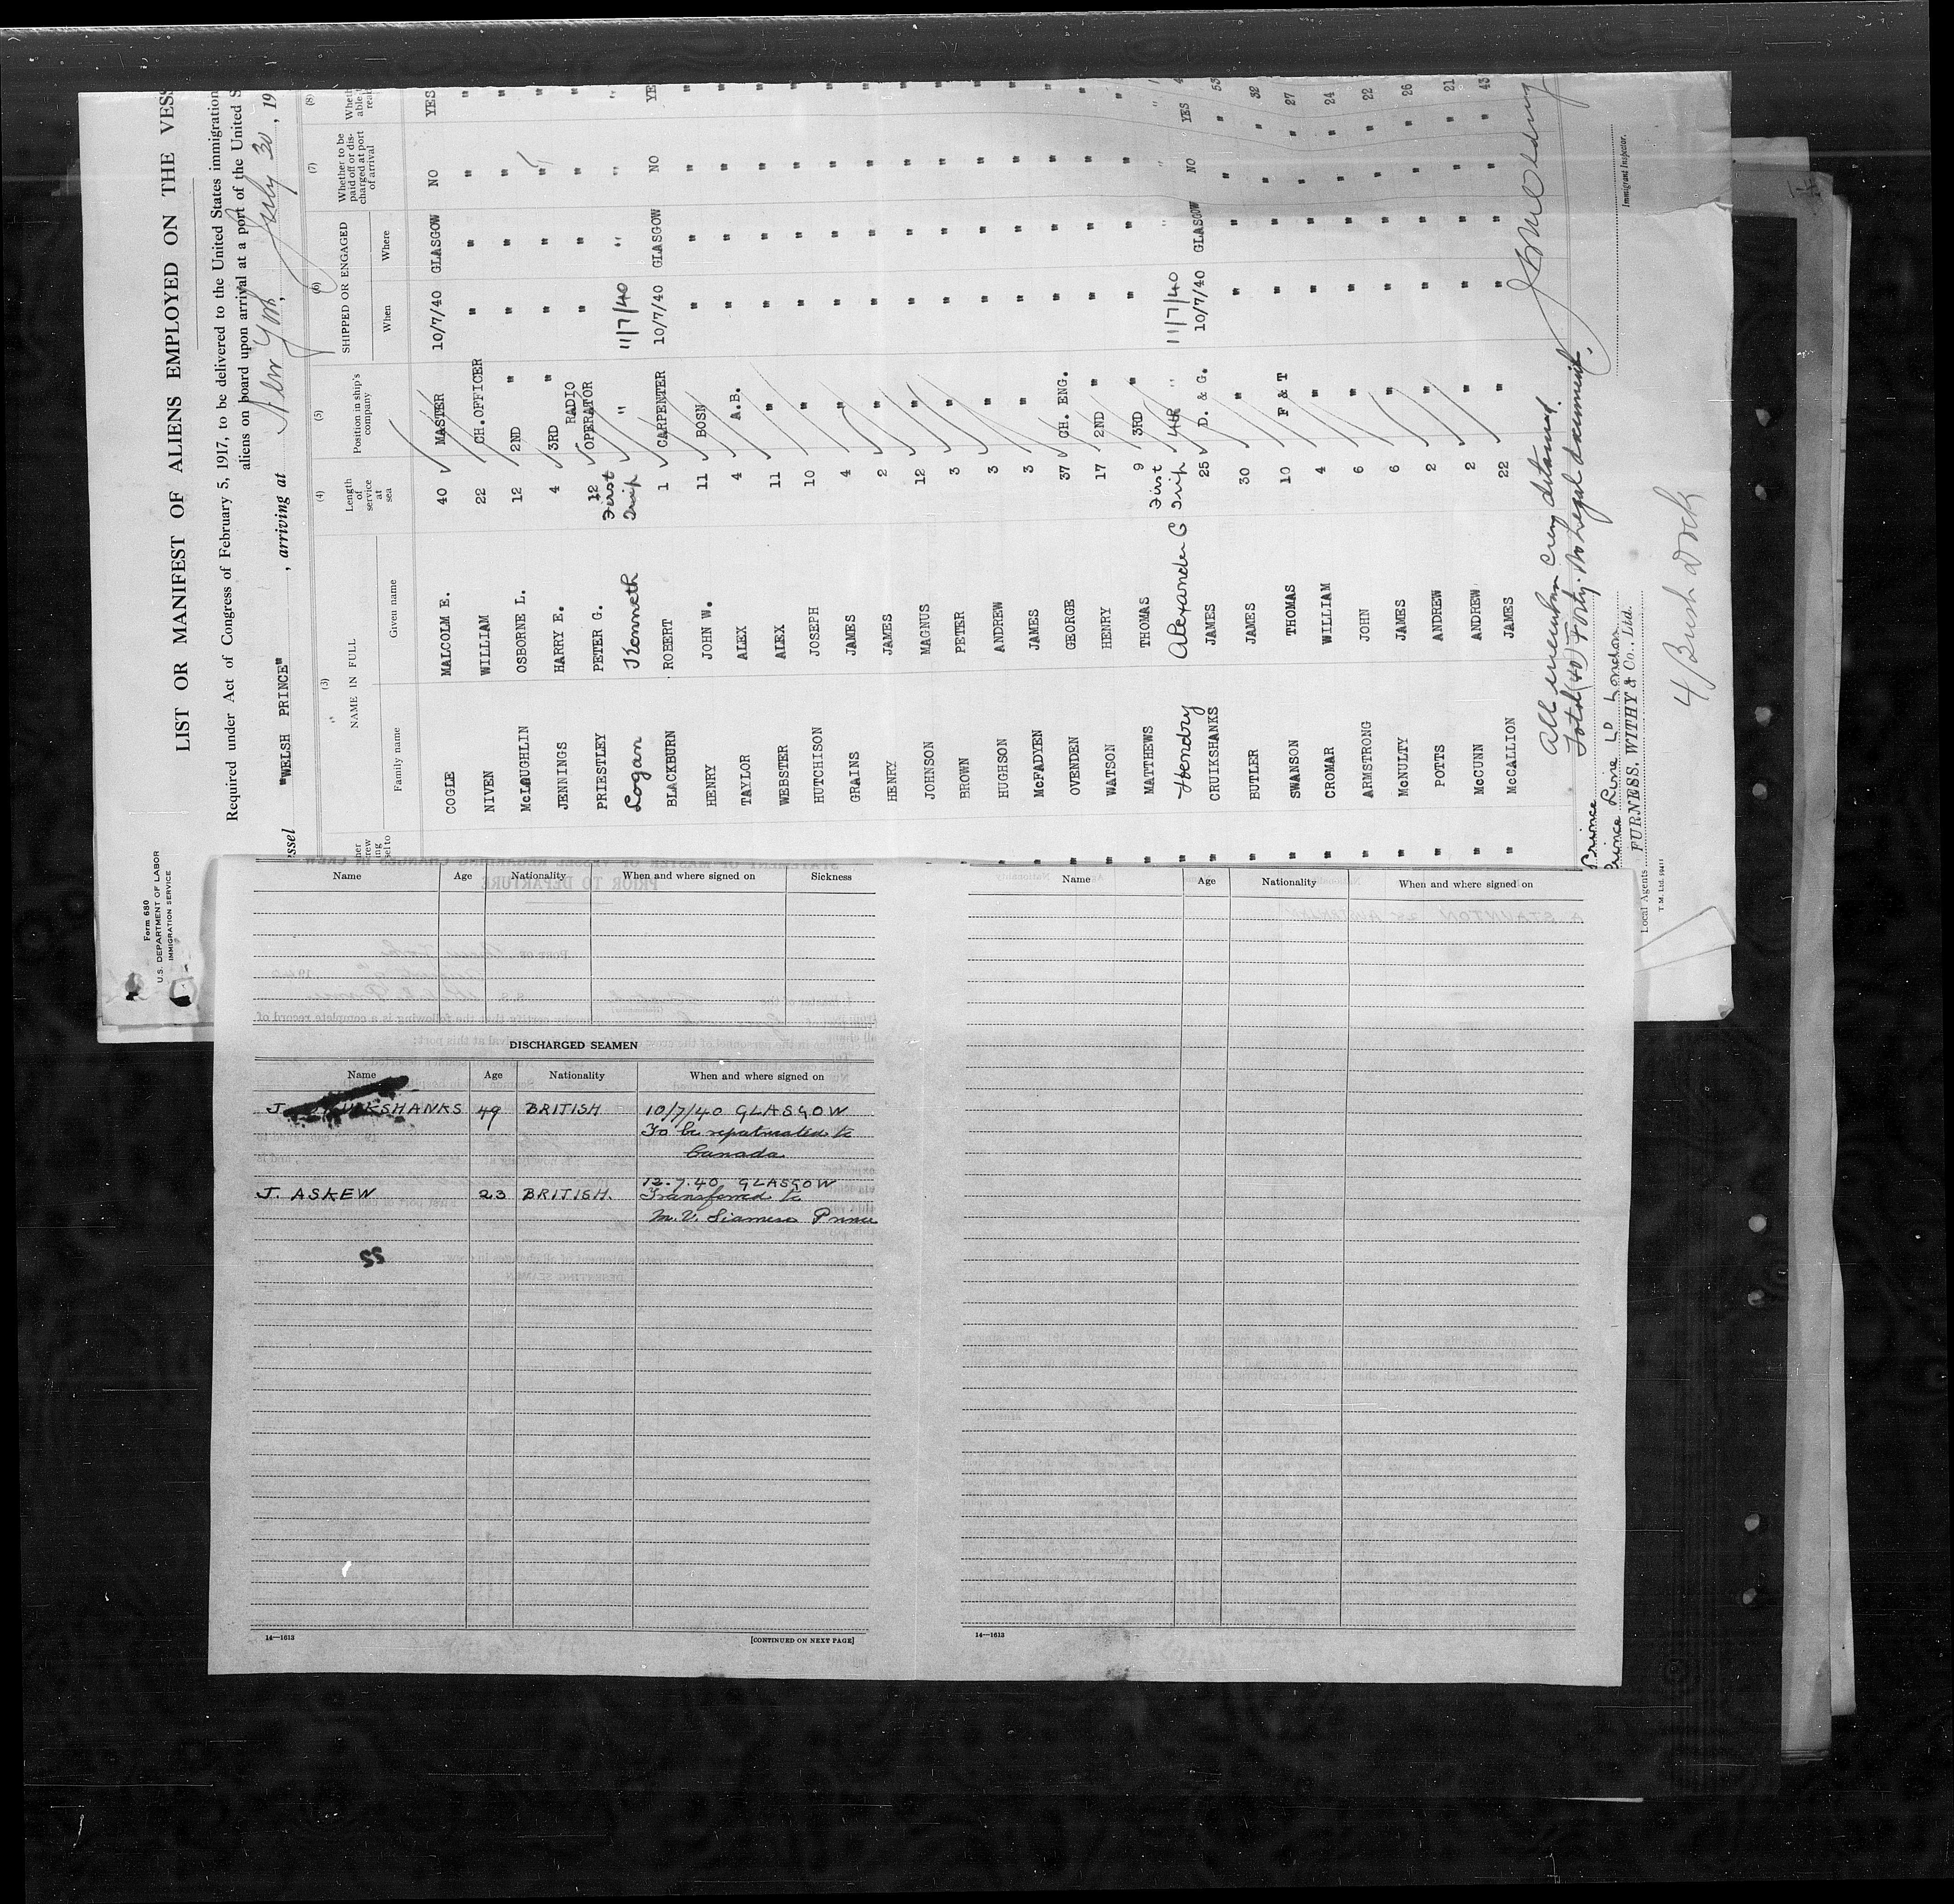 Form 680
U. S. DEPARTMENT OF LABOR
IMMIGRATION SERVICE
LIST OR MANIFEST OF ALIENS EMPLOYED ON THE VESS
Required under Act of Congress of February 5, 1917, to be delivered to the United States immigration
aliens on board upon arrival at a port of the United S
ssel "WELSH PRINCE" , arriving at New York, July 30 , 19
(3) (4) (5) (6) (7) (8)
NAME IN FULL Length of service at sea Position in ship's company SHIPPED OR ENGAGED Whether to be paid off or discharged at port of arrival
Family name Given name When Where
COGLE MALCOLM E. 40 MASTER 10/7/40 GLASGOW NO YES
NIVEN WILLIAM 22 CH.OFFICER " " " "
McLAUGHLIN OSBORNE L. 12 2ND " " " " "
JENNINGS HARRY E. 4 3RD " " " " "
PRIESTLEY PETER G. 12 RADIO OPERATOR " " " "
Logan Kenneth First Trip " 11/7/40 " " "
BLACKBURN ROBERT 1 CARPENTER 10/7/40 GLASGOW NO YE
HENRY JOHN W. 11 BOSN " " " "
TAYLOR ALEX 4 A.B. " " " "
WEBSTER ALEX 11 " " " " "
HUTCHISON JOSEPH 10 " " " " "
GRAINS JAMES 4 " " " " "
HENRY JAMES 2 " " " " "
JOHNSON MAGNUS 12 " " " " "
BROWN PETER 3 " " " " "
HUGHSON ANDREW 3 " " " " "
McFADYEN JAMES 3 " " " " "
OVENDEN GEORGE 37 CH. ENG. " " " "
WATSON HENRY 17 2ND " " " " "
MATTHEWS THOMAS 9 3RD " " " " "
Hendry Alexander G First Trip 4th " 11/7/40 " " "
CRUIKSHANKS JAMES 25 D. & G. 10/7/40 GLASGOW NO YES
BUTLER JAMES 30 " " " " " 53
SWANSON THOMAS 10 F & T " " " " 32
CROMAR WILLIAM 4 " " " " " 27
ARMSTRONG JOHN 6 " " " " " 24
McNULTY JAMES 6 " " " " " 22
POTTS ANDREW 2 " " " " " 26
McCUNN ANDREW 2 " " " " " 21
McCALLION JAMES 22 " " " " " 43
All members crew
Total (40) Forty. No Legal document.
Immigrant Inspector.
Prince
Prince Line Ld London
Local Agents FURNESS, WITHY & Co., Ltd.
T.M. Ltd. 59411
4 Bush Dock
Name Age Nationality When and where signed on Sickness
DISCHARGED SEAMEN
Name Age Nationality When and where signed on
J. CRUIKSHANKS 49 BRITISH 10/7/40 GLASGOW
To be repatriated to
Canada
12.7.40 GLASGOW
J. ASKEW 23 BRITISH. Transferred to
M.V. Siamese Prince
14—1613 [CONTINUED ON NEXT PAGE]
Name Age Nationality When and where signed on
14—1613